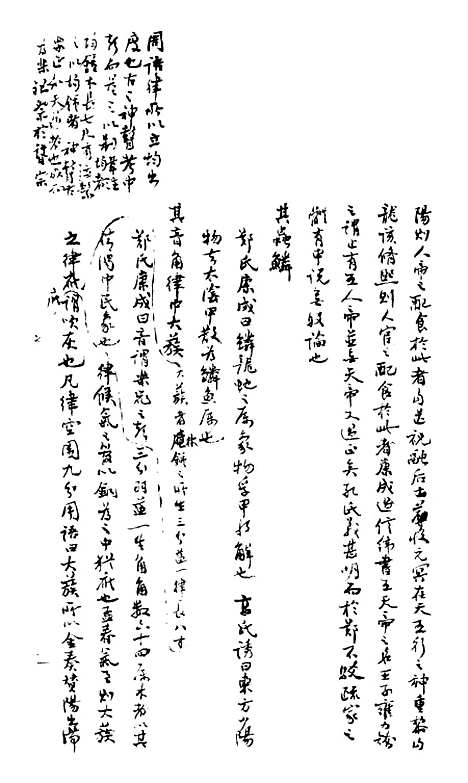 陽則人帝之配食於此者句芒祝融后土蓐收元冥在天五行之神重黎句
龍該脩熙則人官之配食於此者康成過信緯書五天帝之名王子雍力
之謂止有五人帝並無天帝又過正矣孔氏義甚明而於鄭不駮疏家之
體有申說無駮論也
其蟲鱗
鄭氏康成曰鱗龍蛇之屬象物孚甲將解也 高氏誘曰東方少陽
物去太陰甲散為鱗魚屬也
其音角律中大蔟 大蔟者林鍾之所生三分益一律長八寸
鄭氏康成曰音謂樂器之聲三分羽益一生角角數六十四屬木者以其
清濁中民象也 律候氣之管以銅為之中猶應也孟春氣至則大蔟
之律應應謂吹灰也凡律空圍九分周語曰大蔟所以金奏贊陽出滯
周語律所以立均出
度也古之神瞽考中
聲而量之以制韋注
均鍾木長七尺有弦繫
之以均鍾者神瞽古
樂正知天道者也死而
為樂祖祭於瞽宗